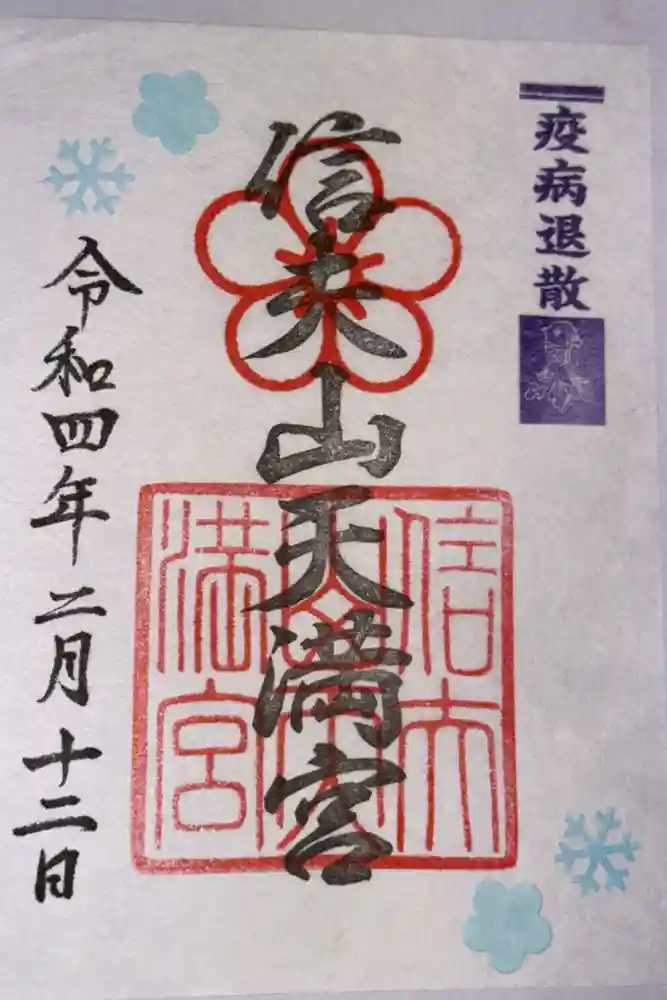 疫病退散
信夫山天満宮
信夫
山天
満宮
令和四年二月十二日